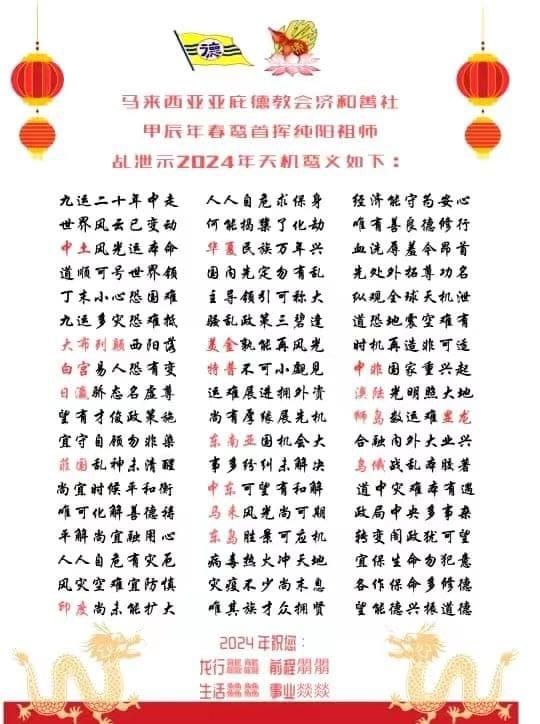 德
马来西亚亚庇德教会济和善社
甲辰年春鸾首挥纯阳祖师
乩泄示2024年天机鸾文如下：
九运二十年中走 人人自危求保身 经济能守为安心
世界风云已变动 何能揭集了化劫 唯有善良德修行
中土风光运本命 华夏民族万年兴 血洗辱羞今昂首
道顺可号世界领 国内先定勿有乱 先处外拓尊功名
丁未小心恐国难 主导领引可称大 纵观全球天机泄
九运多灾恐难抵 骚乱政策三碧造 道恐地震空难有
大布列颠西阳落 美金孰能再风光 时机再造非可适
白宫易人恐有变 特普不可小觑见 中非国家重兴起
日瀛骄态名虚尊 运难展进拥外资 澳陆光明照大地
望有才俊政策施 尚有厚缘展先机 狮岛数运难显龙
宜守自领勿非染 东南亚国机会大 合融内外大业兴
菲国乱神未清醒 事多纷纠未解决 乌俄战乱本胶著
尚宜时候平和衡 中东可望有和解 道中灾难本有遇
唯可化解善德祷 马来风光尚可期 政局中央多事杂
平解尚宜融用心 东岛胜景可应机 转变阁政犹可望
人人自危有灾厄 病毒热火冲天地 宜保生命勿犯意
风灾空难宜防慎 灾疫不少尚未息 各作保命多修德
印度尚未能扩大 唯其族才众拥贤 望能德兴振道德
2024年祝您：
龙行龘龘 前程朤朤
生活 事业燚燚